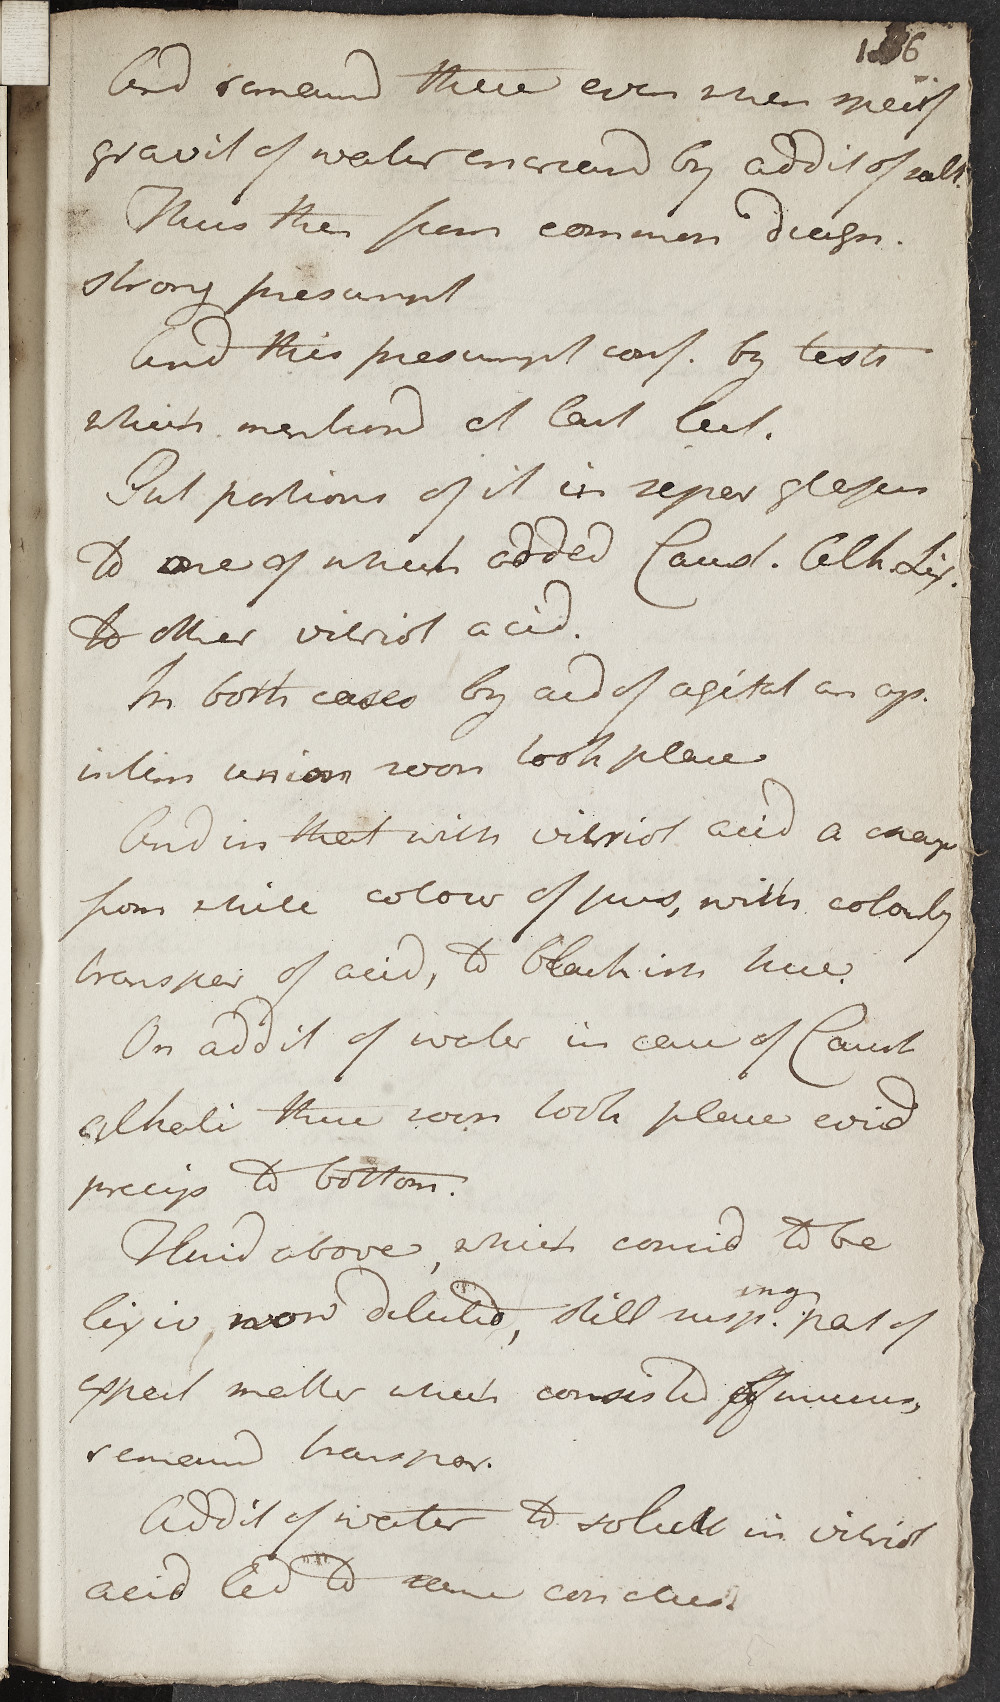 136
And remaind there even when specif
gravit of water encreasd by addit of salt.
Thus then from common diagn.
strong presumpt
And this presumpt conf. by tests
which mentiond at last lect.
Put portions of it in separ glasses
to one of which added Caust. Alk. Lix.
to other vitriol acid.
In both cases by aid of agitat an ap.
intim union soon took place
And in that with vitriol acid a change
from white colour of pus, with colourless
transpar of acid, to blackish hue.
On addit of water in case of Caust
alkali there soon took place evid
precip to bottom.
Fluid above, which consid to be
lixiv, now diluted, still susp.ing part of
expect matter which consisted of mucus,
remaind transpar.
Addit of water to solut in vitriol
acid led to same conclus.